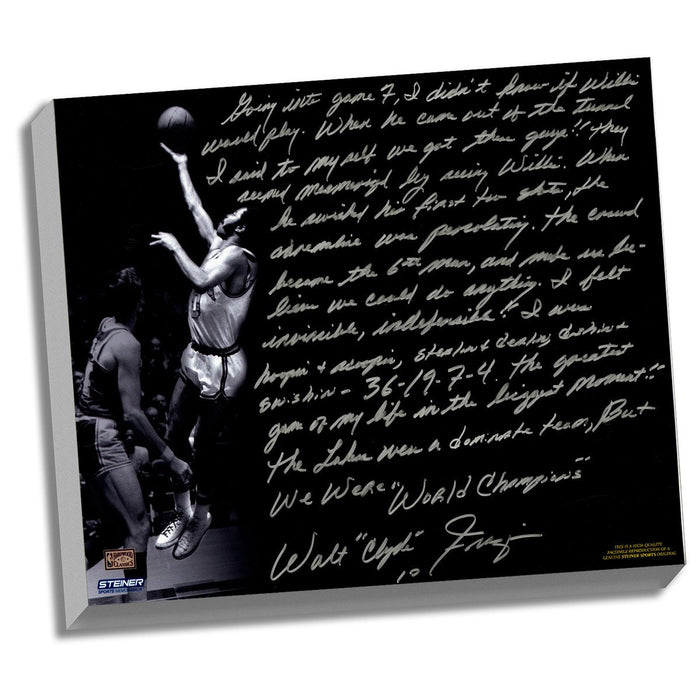 Going into game 7, I didn't know if Willis
would play. When he came out of the tunnel
I said to my self we got these guys!! They
seemed mesmerized by seeing Willis. When
he swished his first two shots, the
adrenaline was percolating. The crowd
became the 6th man, and made us be-
lieve we could do anything. I felt
invincible, indefensible!! I was
hoopin & scoopin, stealin & dealin, dishin &
swishin - 36-19-7-4. The greatest
game of my life in the biggest moment!!
The Lakers were a dominate team, But
We Were "World Champions"
Walt "Clyde" Frazier
10
HARDWOOD
CLASSICS
STEINER
SPORTS MEMORABILIA
THIS IS A HIGH-QUALITY
FACSIMILE REPRODUCTION OF A
GENUINE STEINER SPORTS ORIGINAL